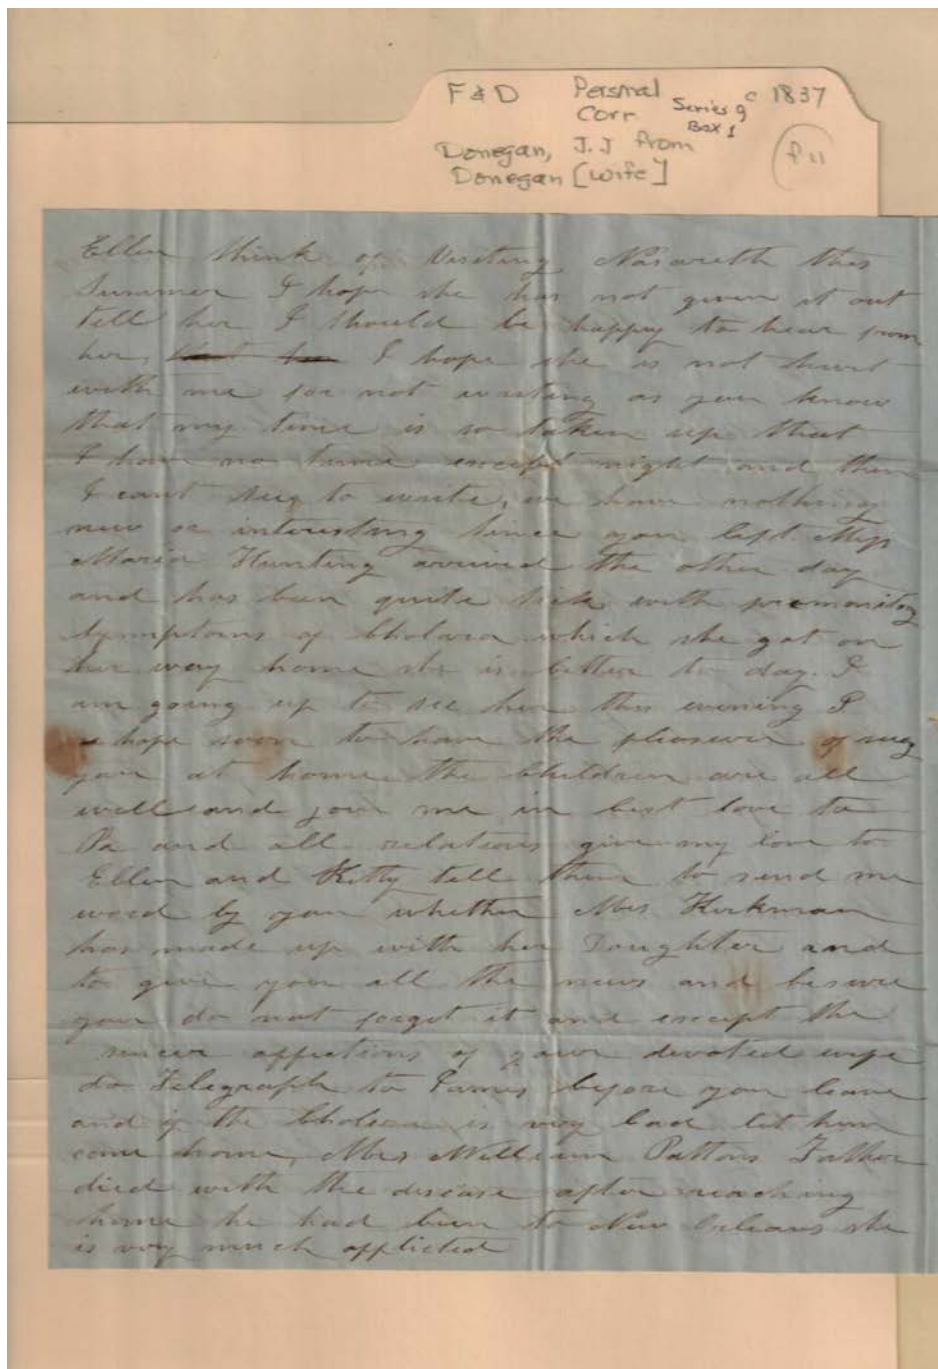 F & D Personal Corr Series 9 Box 1 c 1837
Donegan, J.J from Donegan [wife]
P 11
Ellen think of Visiting Nasareth this
Summer I hope she has not given it out
tell her I should be happy to hear from
her, I hope she is not hurt
with me for not writing as you know
that my time is so taken up that
I have no time except night and then
I cant see to write, we have nothing
new or interesting since you left Miss
Maria Hunting arrived the other day
and has been quite sick with premonitory
symptoms of Cholera which she got on
her way home she is better to day. I
am going up to see her this evening I
hope soon to have the pleasure of
you at home the Children are all
well and join me in best love to
Pa and all relations give my love to
Ellen and Kitty tell them to send me
word by you whether Mrs Kirkman
has made up with her Daughter and
to give you all the news and besure
you do not forget it and except the
sincere affections of your devoted wife
do Telegraph to James before you leave
and if the Cholera is very bad let him
come home, Mrs William Pattons Father
died with the disease after reaching
home he had been to New Orleans she
is very much afflicted